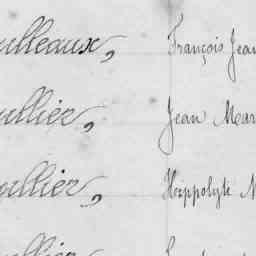 ulleaux, François Jean
ullier, Jean Mar
ullier, Hippolyte
ullier,